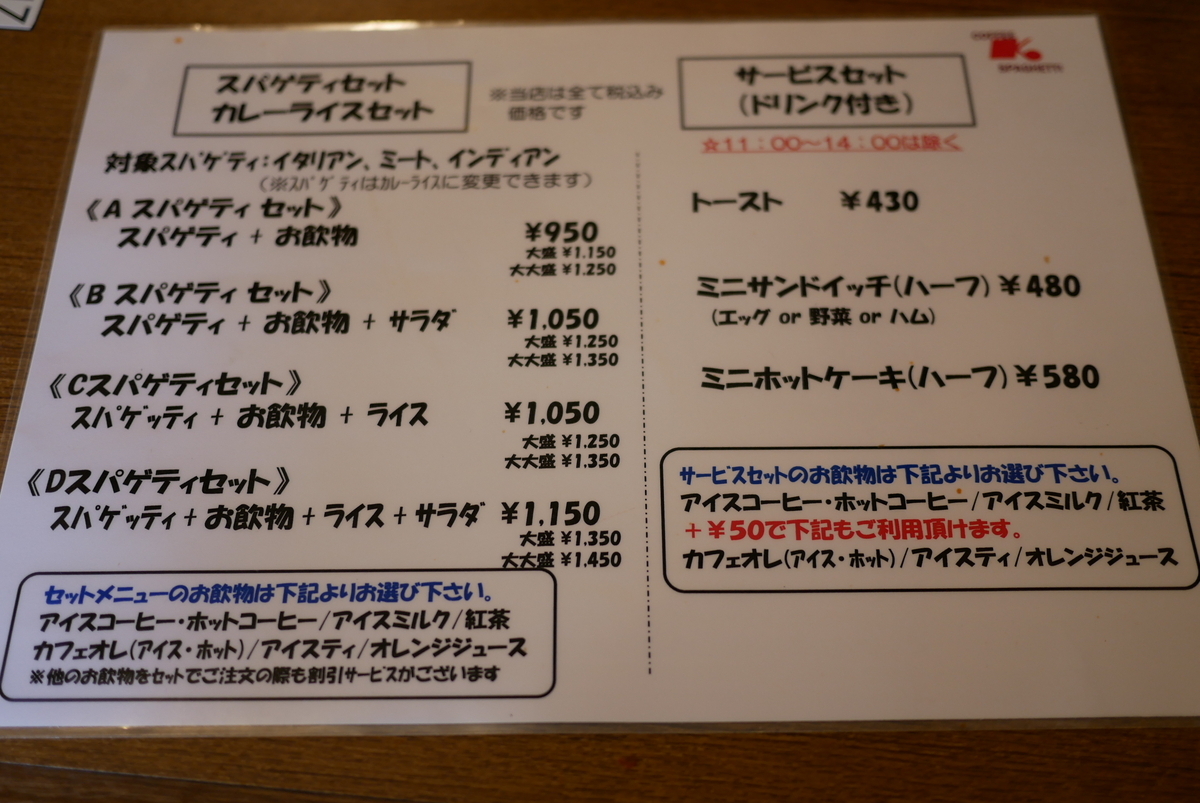 スパゲティセット
カレーライスセット
※当店は全て税込み
価格です
対象スパゲティ：イタリアン、ミート、インディアン
（※スパゲティはカレーライスに変更できます）
《A スパゲティ セット》
スパゲティ + お飲物 ¥950
大盛 ¥1.150
大大盛 ¥1.250
《B スパゲティ セット》
スパゲティ + お飲物 + サラダ ¥1.050
大盛 ¥1.250
大大盛 ¥1.350
《Cスパゲティセット》
スパゲッティ + お飲物 + ライス ¥1.050
大盛 ¥1.250
大大盛 ¥1.350
《Dスパゲティセット》
スパゲッティ + お飲物 + ライス + サラダ ¥1.150
大盛 ¥1.350
大大盛 ¥1.450
セットメニューのお飲物は下記よりお選び下さい。
アイスコーヒー・ホットコーヒー/アイスミルク/紅茶
カフェオレ(アイス・ホット)/アイスティ/オレンジジュース
※他のお飲物をセットでご注文の際も割引サービスがございます
サービスセット
(ドリンク付き)
☆11：00～14：00は除く
トースト ¥430
ミニサンドイッチ(ハーフ) ¥480
(エッグ or 野菜 or ハム)
ミニホットケーキ(ハーフ) ¥580
サービスセットのお飲物は下記よりお選び下さい。
アイスコーヒー・ホットコーヒー/アイスミルク/紅茶
+¥50で下記もご利用頂けます。
カフェオレ(アイス・ホット)/アイスティ/オレンジジュース
SPAGHETTI